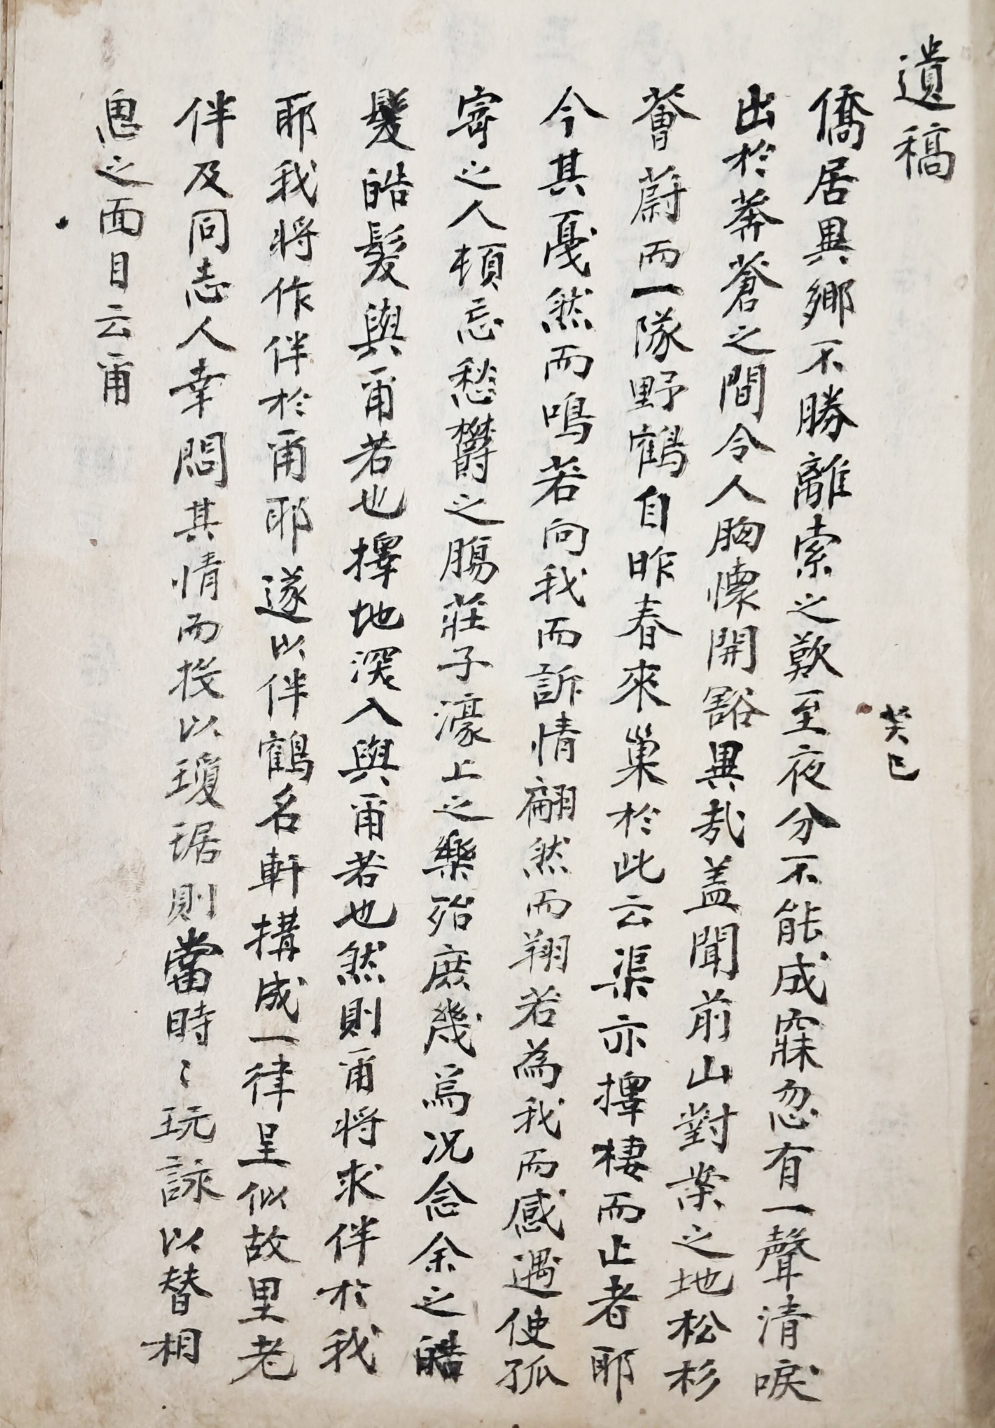 遺稿
癸巳
僑居異鄉不勝離索之歎至夜分不能成寐忽有一聲清唳
出於莽蒼之間令人胸懷開豁異哉盖聞前山對業之地松杉
薈蔚而一隊野鶴自昨春來巢於此云渠亦擇棲而止者耶
今其戞然而鳴若向我而訴情翩然而翔若為我而感遇使孤
寄之人頓忘愁欝之膓莊子濠上之樂殆庶幾焉况念余之皓
鬓皓髮與甭若也擇地深入與甭若也然則甭將求伴於我
耶我將作伴於甭耶遂以伴鶴名軒搆成一律呈似故里老
伴及同志人幸悶其情而投以瓊琚則當時〻玩詠以替相
思之面目云甭